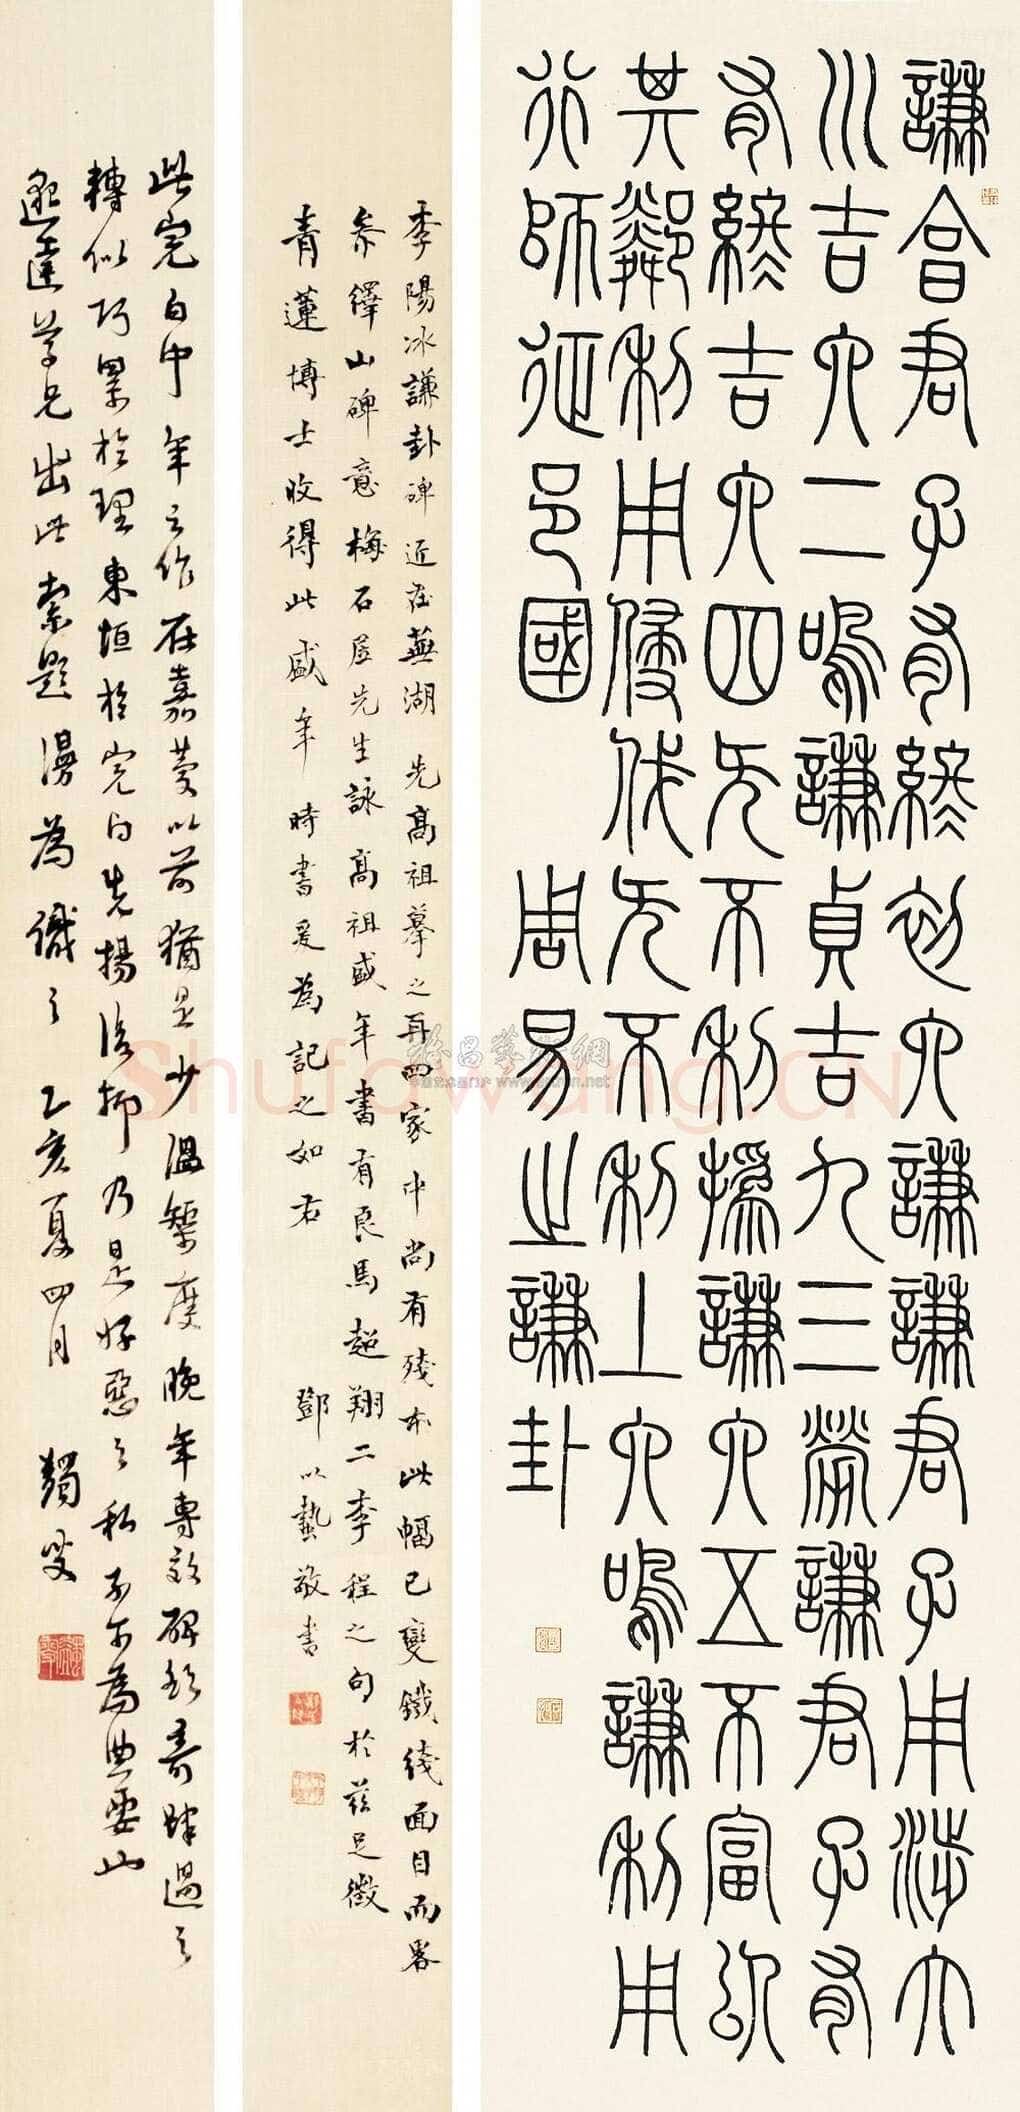 謙亨君子有終初六謙謙君子用涉大
川吉六二鳴謙貞吉九三勞謙君子有
有終吉六四无不利撝謙六五不富以
其鄰利用侵伐无不利上六鳴謙利用
行師征邑國 周易之謙卦
李陽冰謙卦碑近在蕪湖先高祖摹之再四家中尚有殘本此幅已變鐵綫面目而畧
參繹山碑意梅石居先生詠高祖盛年書有良馬超翔二李程之句於茲足徵
青蓮博士收得此盛年時書爰為記之如右 鄧以蟄敬書
此完白中年之作在嘉慶以前猶是少溫榘度晚年專效碑額奇肆過之
轉似巧累於理東垣於完白先揚後抑乃是好惡之私不可為典要也
尊兄出此索題漫為識之 乙亥夏四月 蠲叟
Shufawang.CN